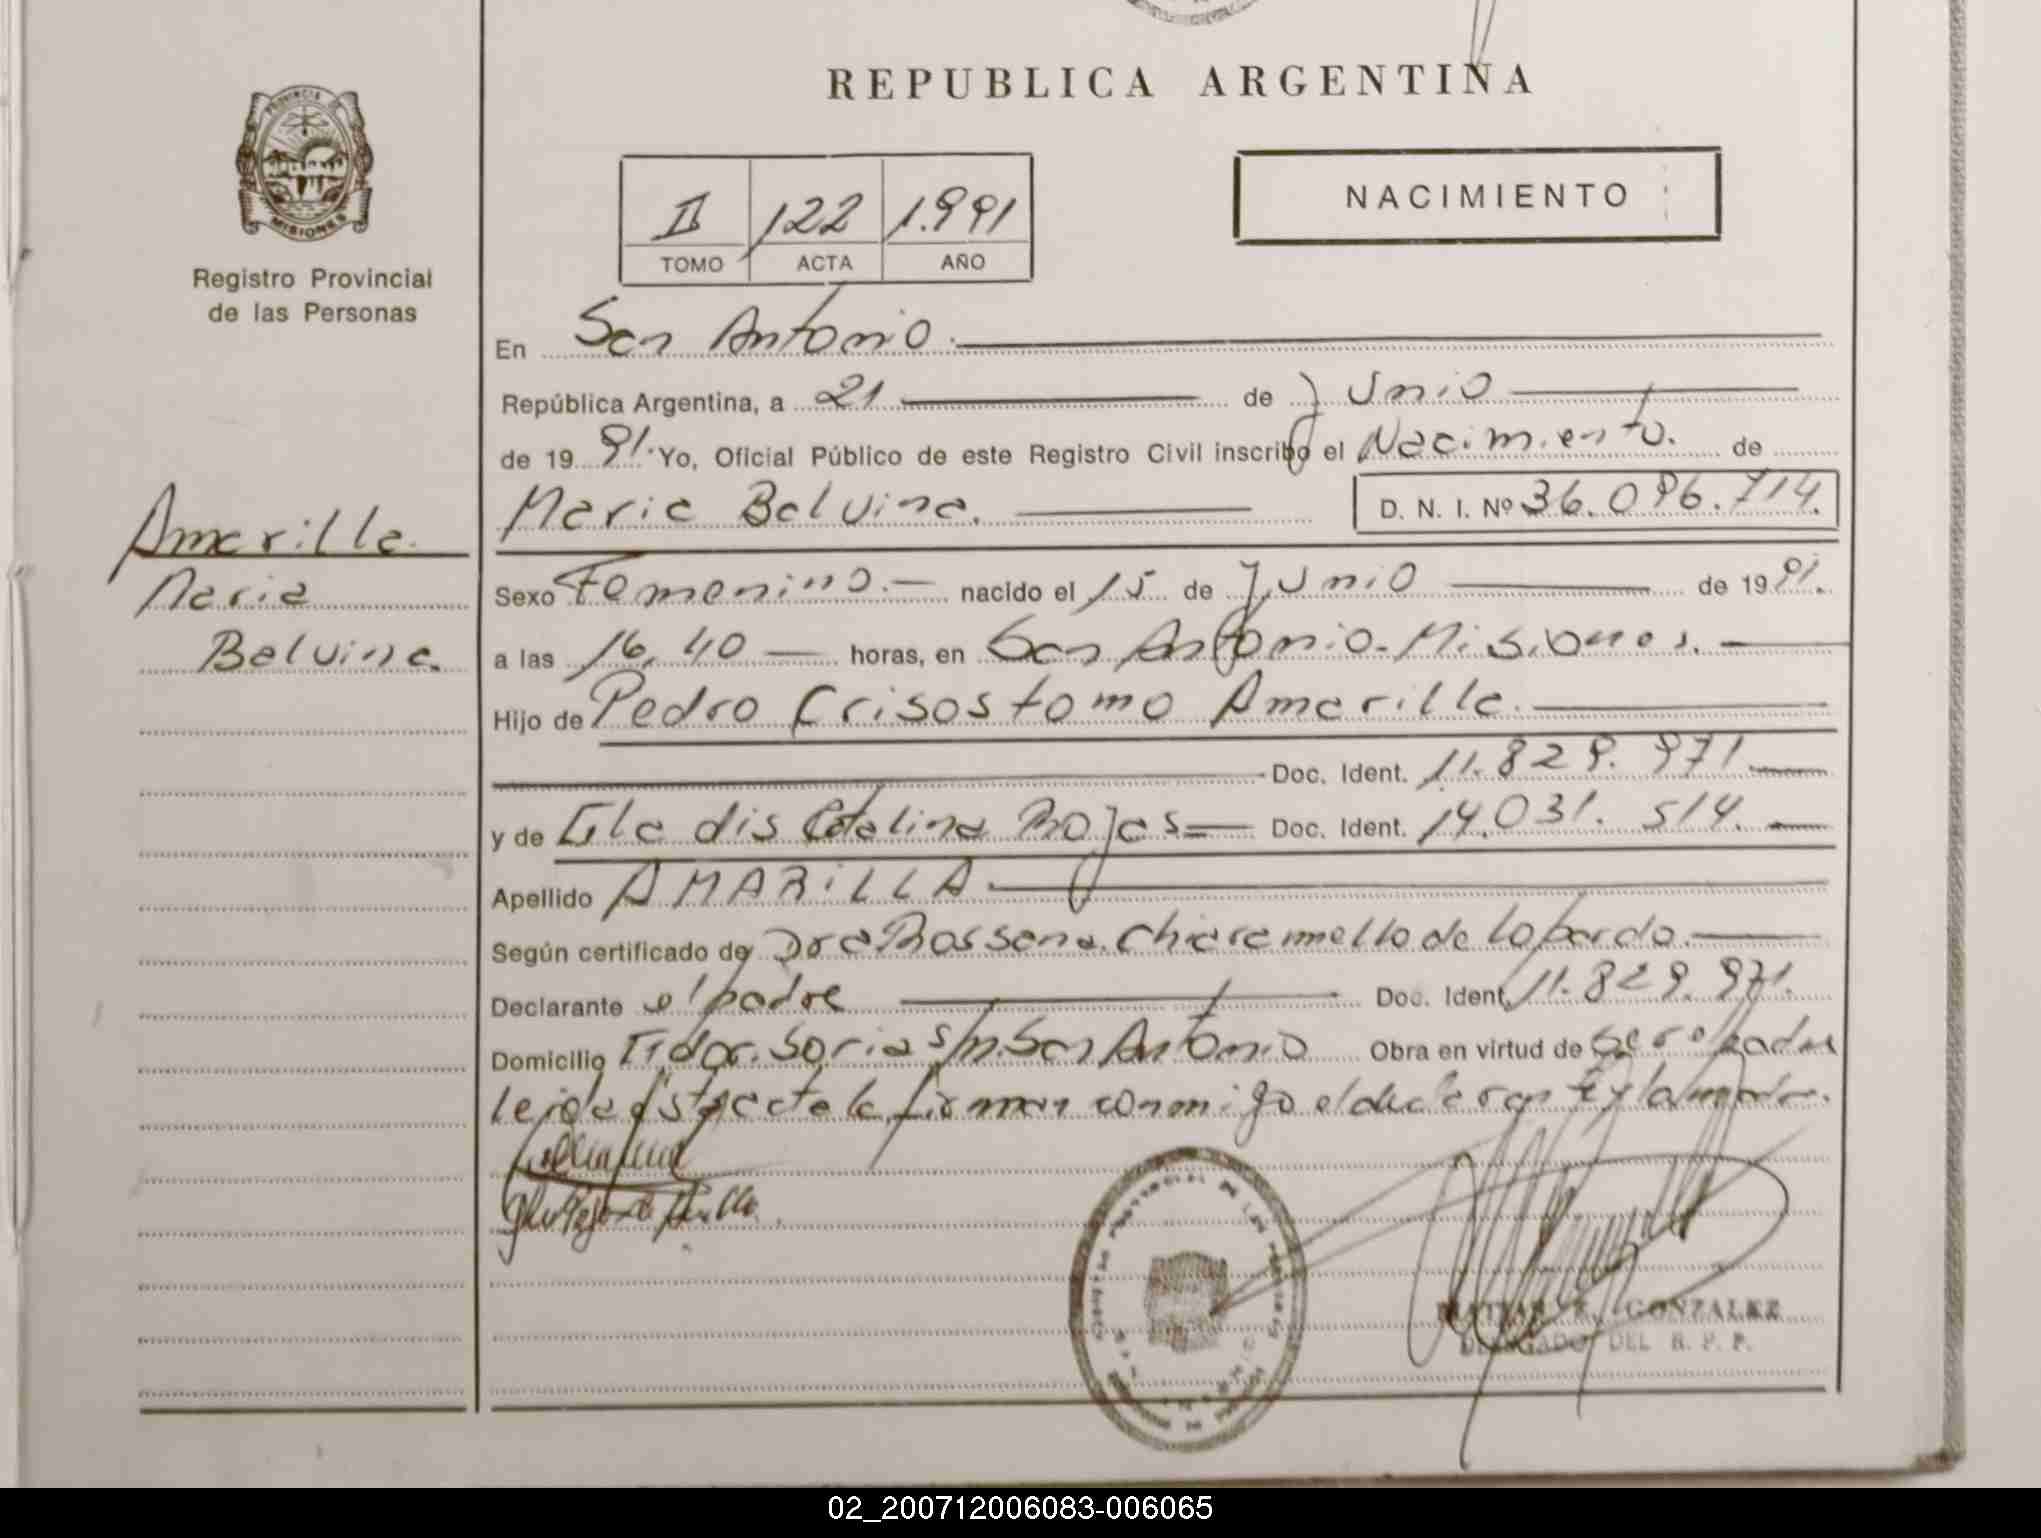 REPUBLICA ARGENTINA
PROVINCIA DE
MISIONES
Registro Provincial
de las Personas
II 122 1.991
TOMO ACTA AÑO
NACIMIENTO
En San Antonio.
República Argentina, a 21 de Junio
de 19 91. Yo, Oficial Público de este Registro Civil inscribo el Nacimiento. de
Maria Balvina. D. N. I. Nº 36.096.714.
Amarilla.
Maria
Balvina.
Sexo Femenino.- nacido el 15 de Junio de 19 91.
a las 16,40 horas, en San Antonio-Misiones.
Hijo de Pedro Crisostomo Amarilla.
Doc. Ident. 11.829.971.
y de Gladis Catalina Rojas Doc. Ident. 14.031.514.
Apellido AMARILLA
Según certificado de Dra Rossana. Chiaramello de Lopardo.
Declarante el padre Doc. Ident. 11.829.971.
Domicilio Gdor. Soria s/n. San Antonio Obra en virtud de ser el padre
leida esta acta la firman conmigo el declarante y la madre.
MATIAS GONZALEZ
DELEGADO DEL R. P. P.
02_200712006083-006065